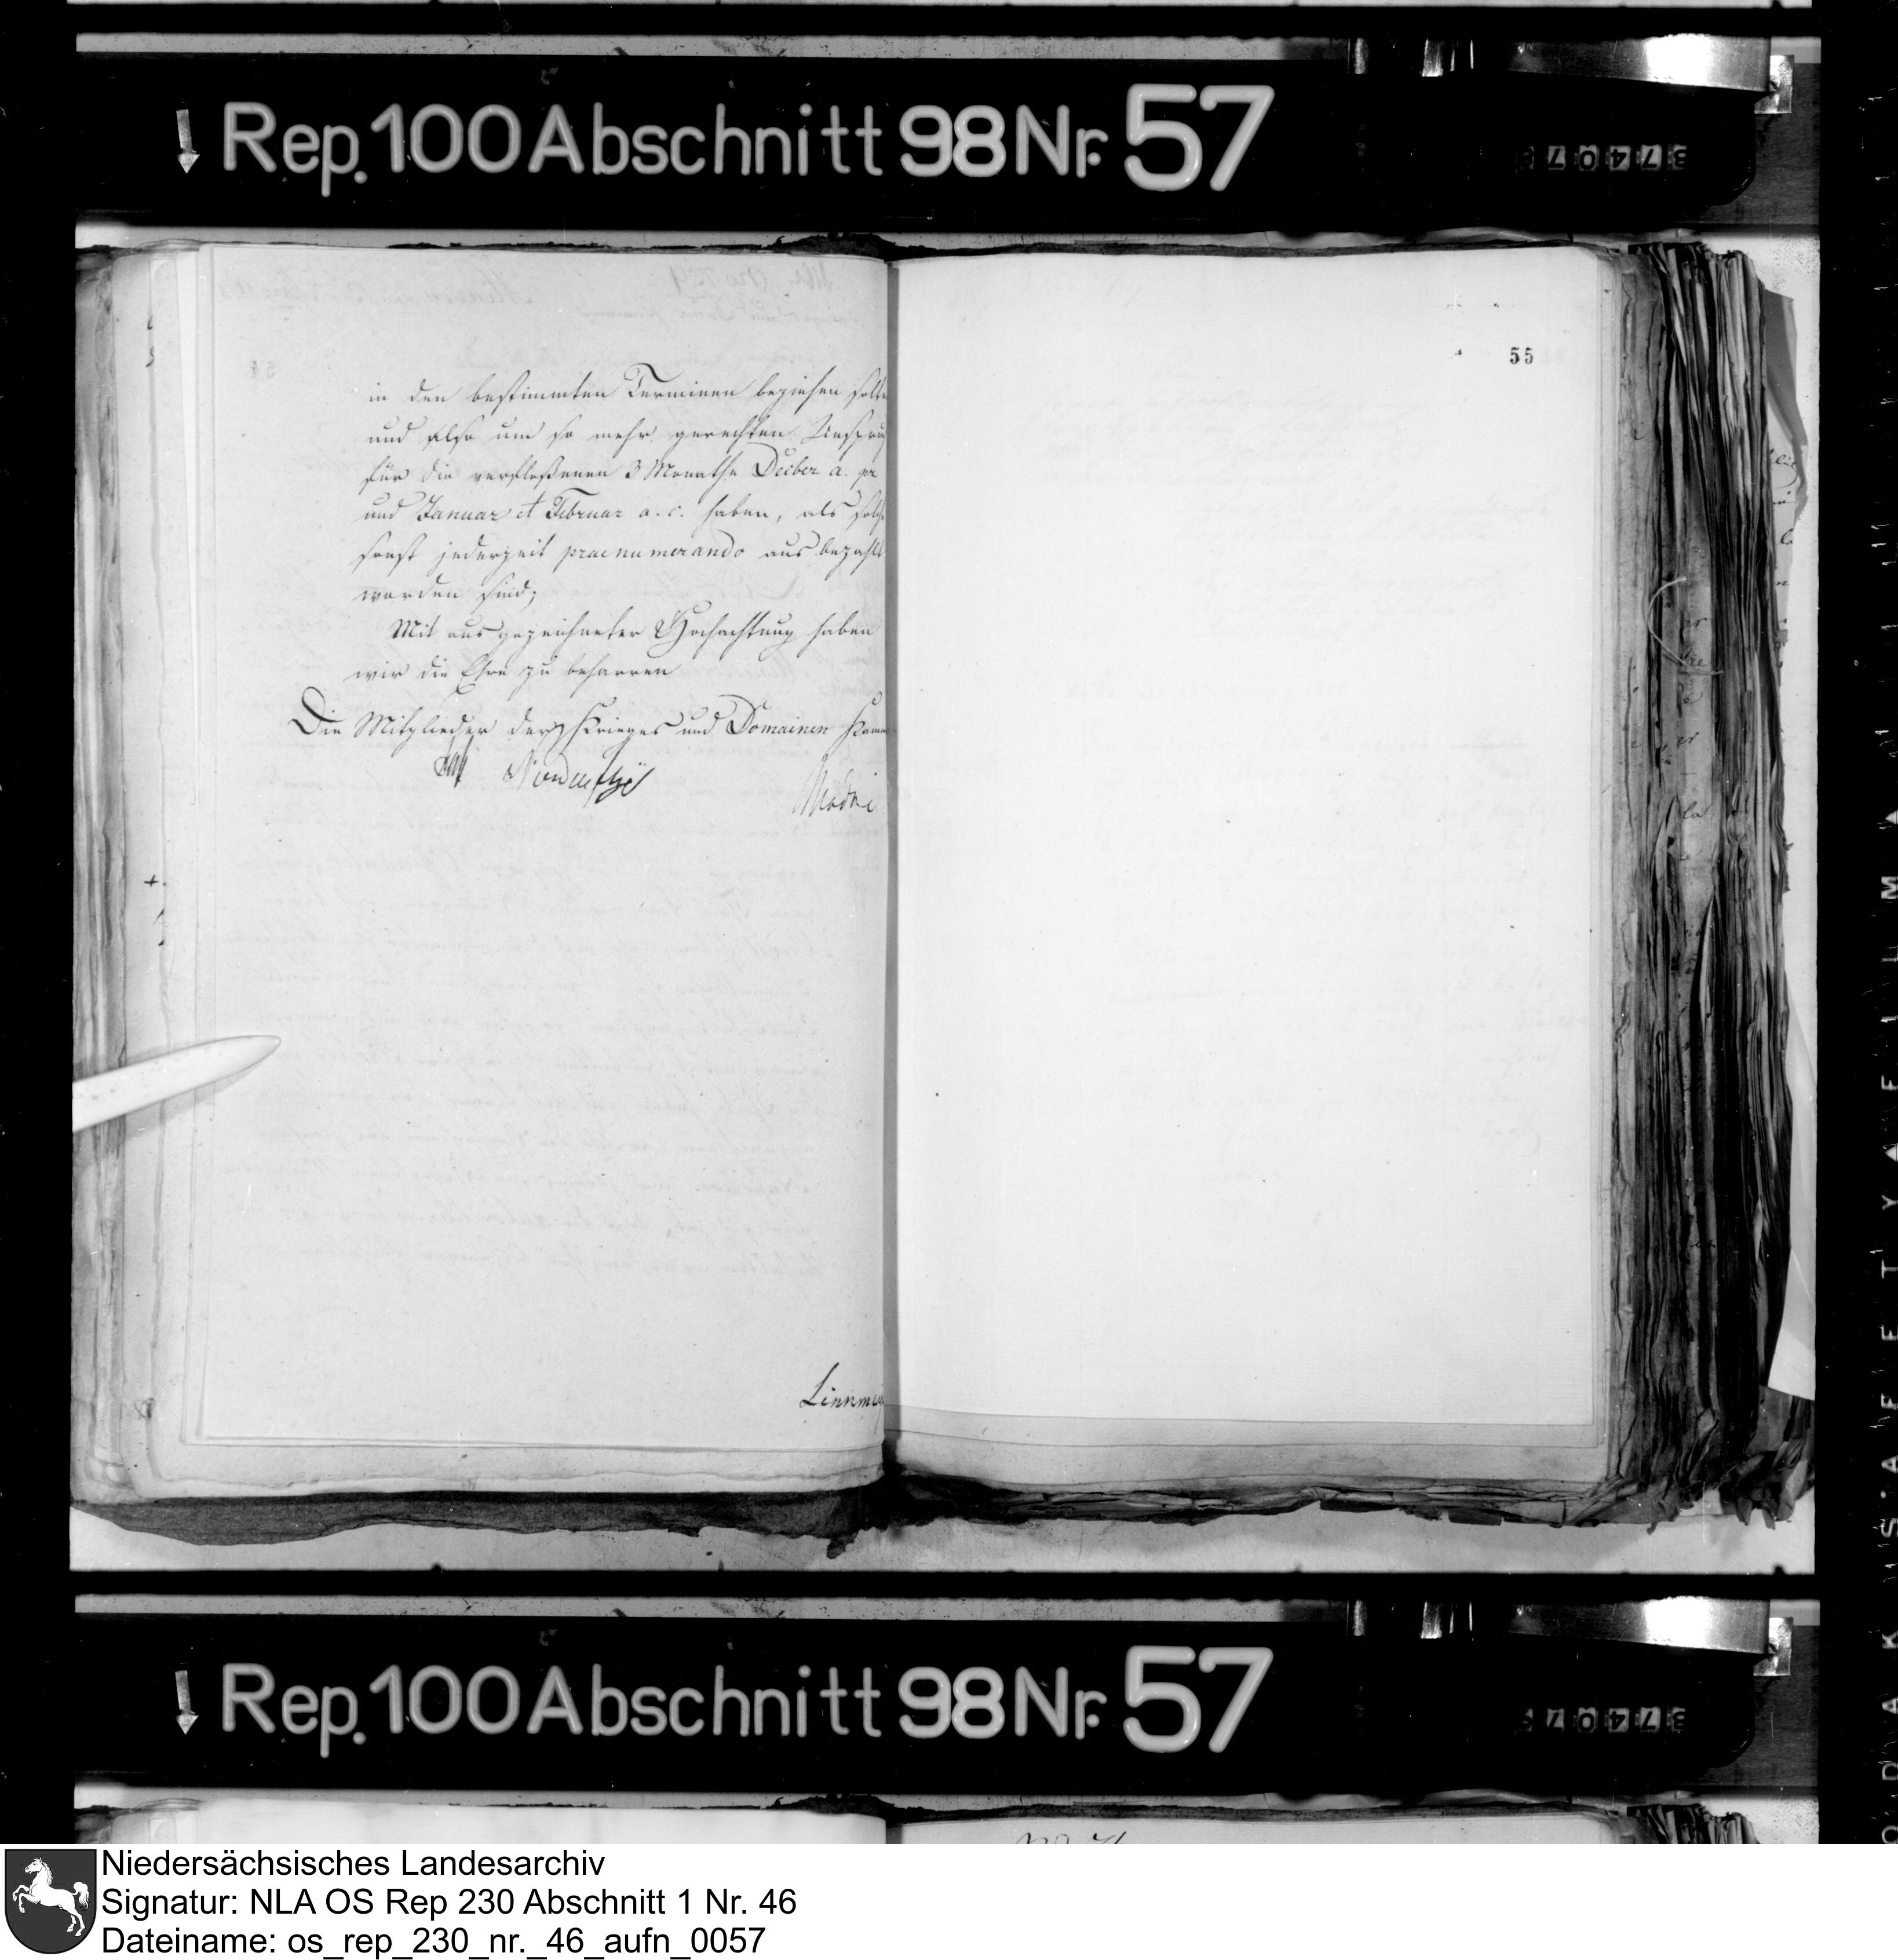 Rep. 100 Abschnitt 98 Nr. 57
37407
55
in den bestimmten Terminen beziehen
und also um so mehr gerechten
für die verfloßenen 3 Monathe Decber a. pr
und Januar et Februar a. c. haben, als
sonst jederzeit praenumerando aus bezahlt
worden sind;
Mit ausgezeichneter Hochachtung haben
wir die Ehre zu beharren
Die Mitglieder der Krieges und Domainen
Linnmey
Rep. 100 Abschnitt 98 Nr. 57
37407
Niedersächsisches Landesarchiv
Signatur: NLA OS Rep 230 Abschnitt 1 Nr. 46
Dateiname: os_rep_230_nr._46_aufn_0057